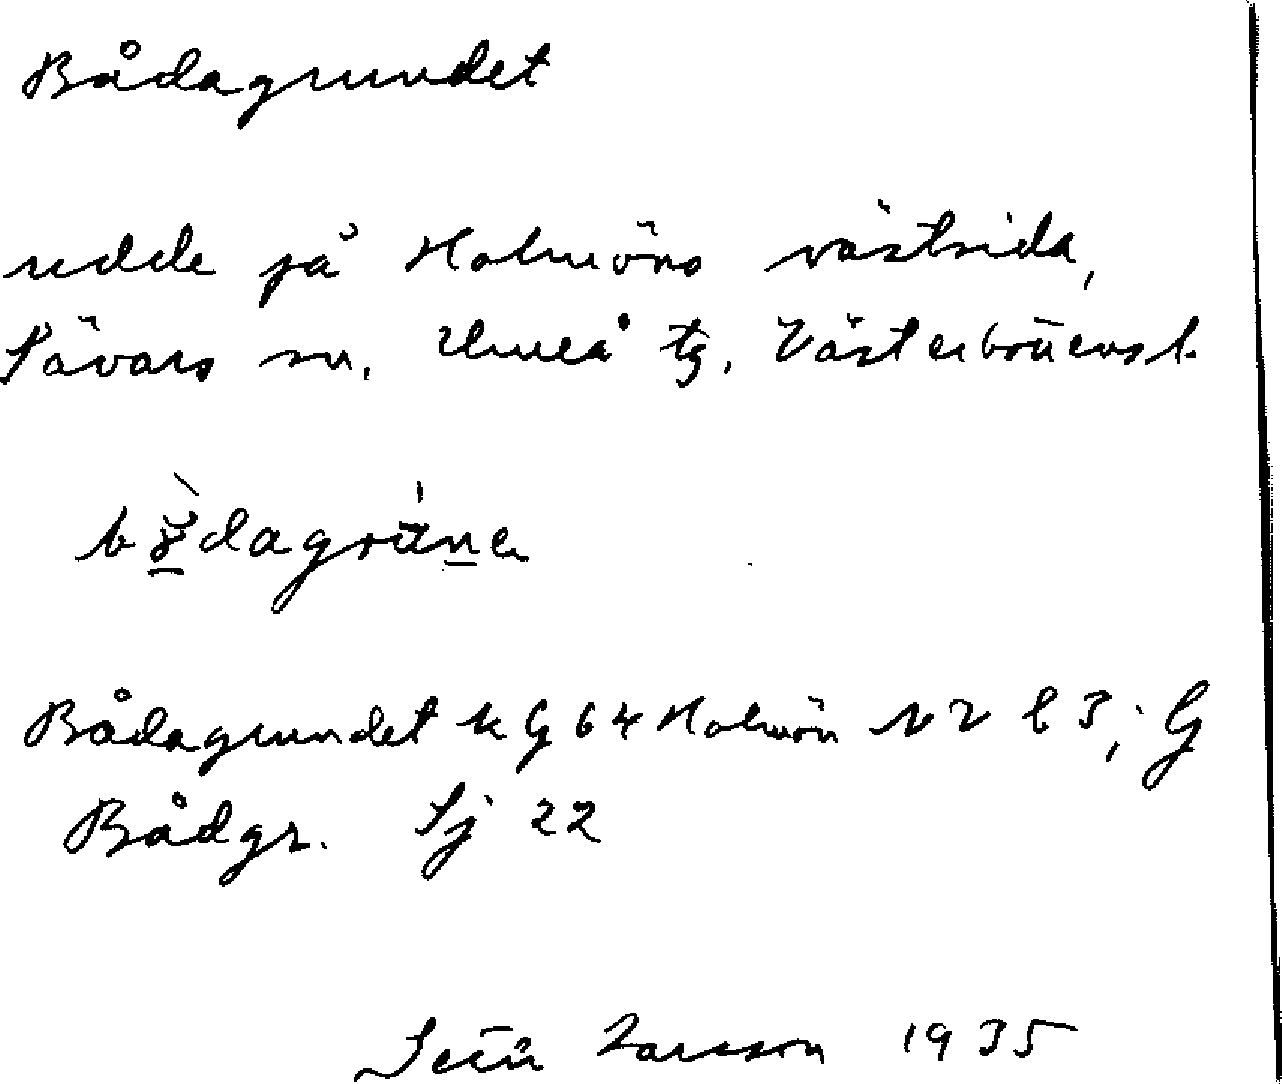 Bådagrundet
udde på Holmöns västsida,
Sävars sn, Umeå tg, Västerbottens l.
Bådagrundet k G 64 Holmön NV l 3; G
Bådgr. Sj 22
Larsson 1935